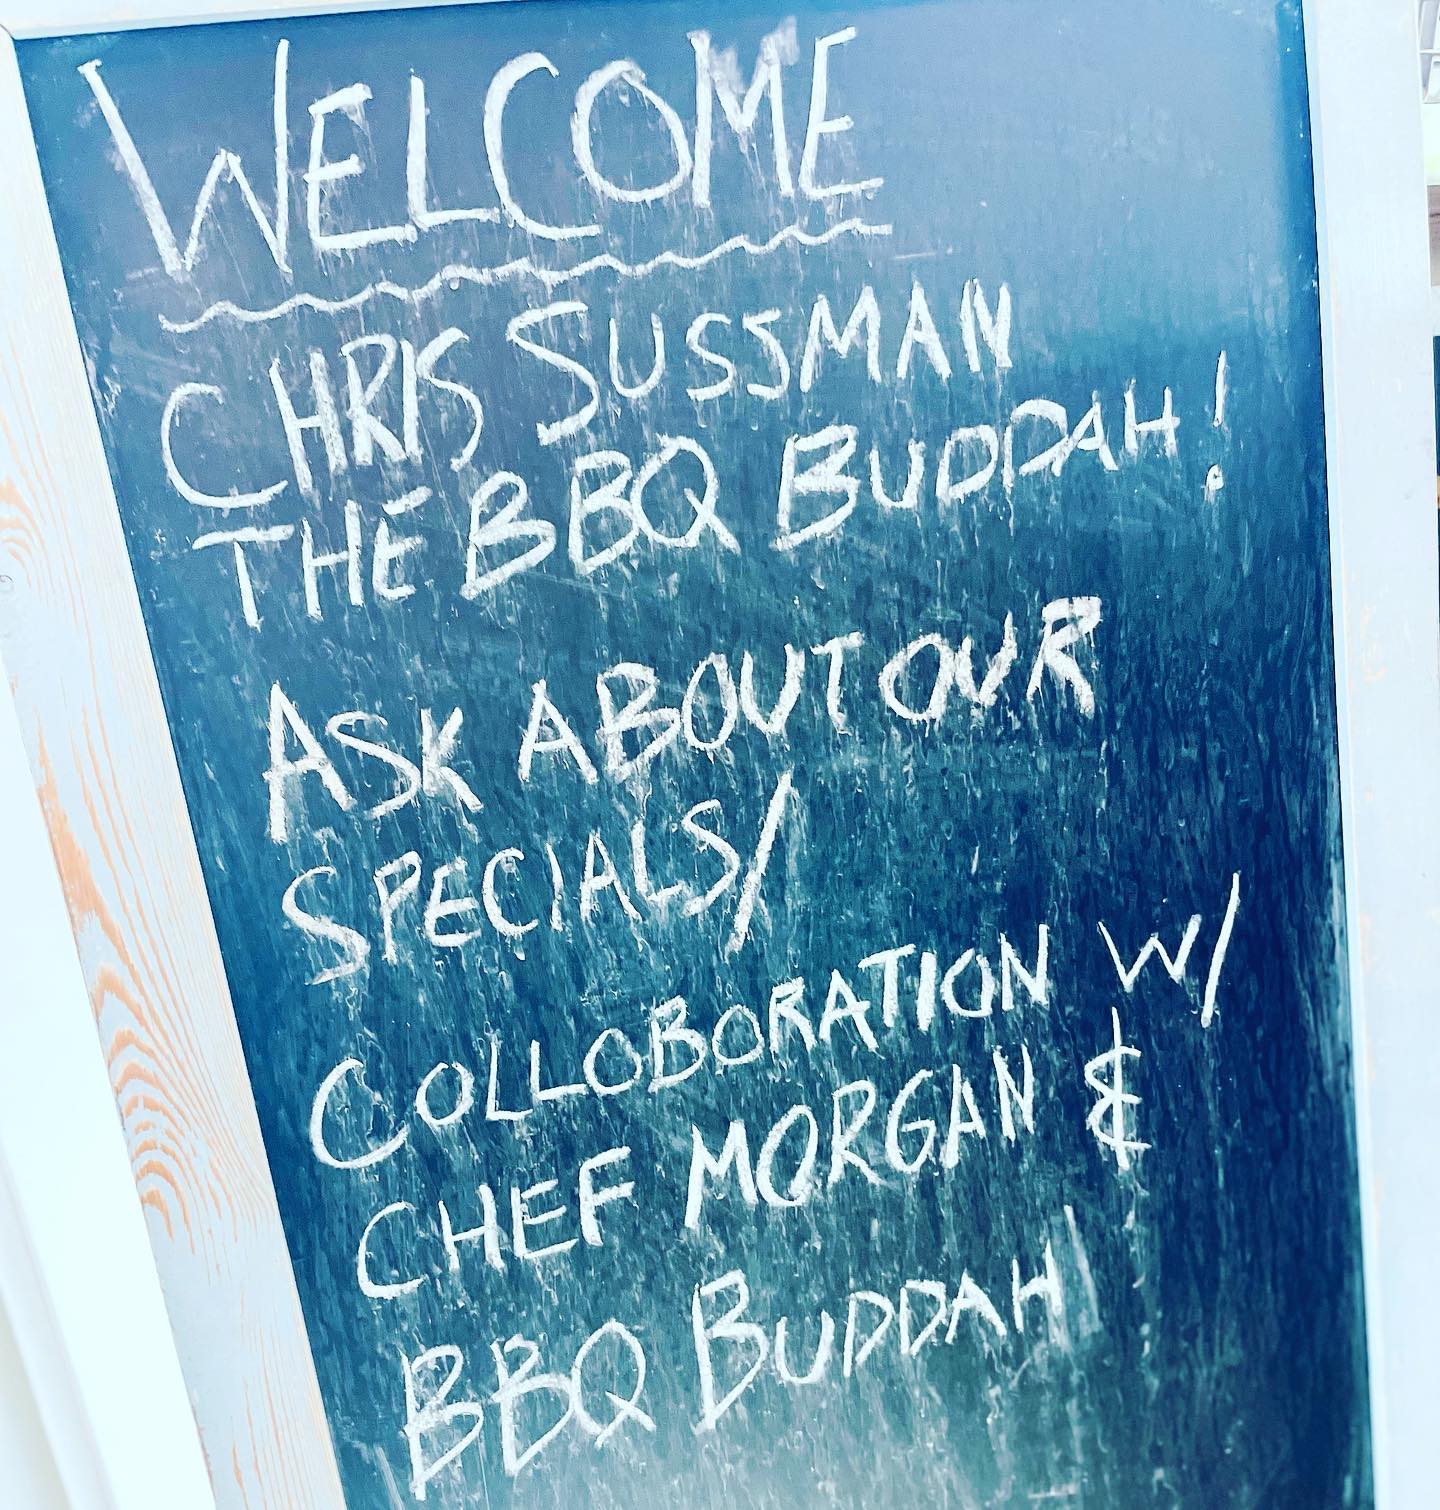 WELCOME
CHRIS SUSSMAN
THE BBQ BUDDAH!
ASK ABOUT OUR
SPECIALS/
COLLOBORATION W/
CHEF MORGAN &
BBQ BUDDAH